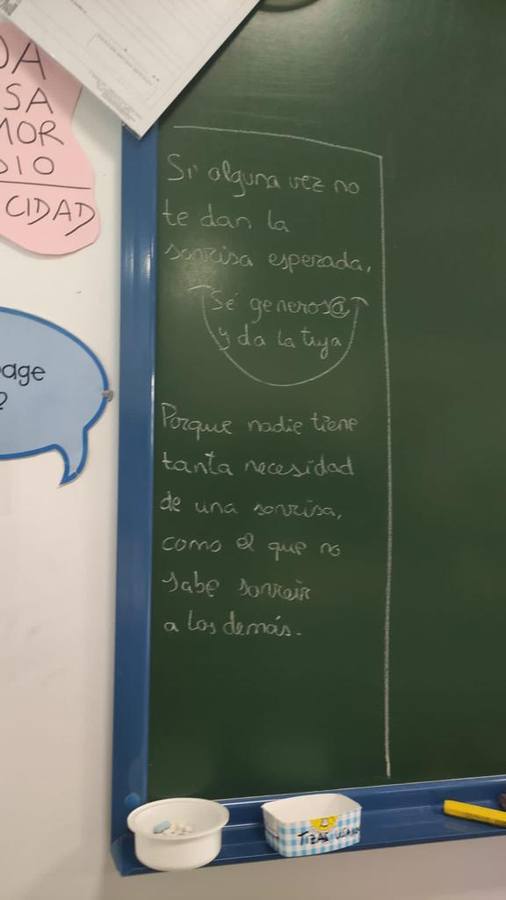 DA
SA
MOR
DIO
CIDAD
age
?
Si alguna vez no
te dan la
sonrisa esperada,
Sé generos@
y da la tuya
Porque nadie tiene
tanta necesidad
de una sonrisa,
como el que no
sabe sonreir
a los demás.
TIZAS